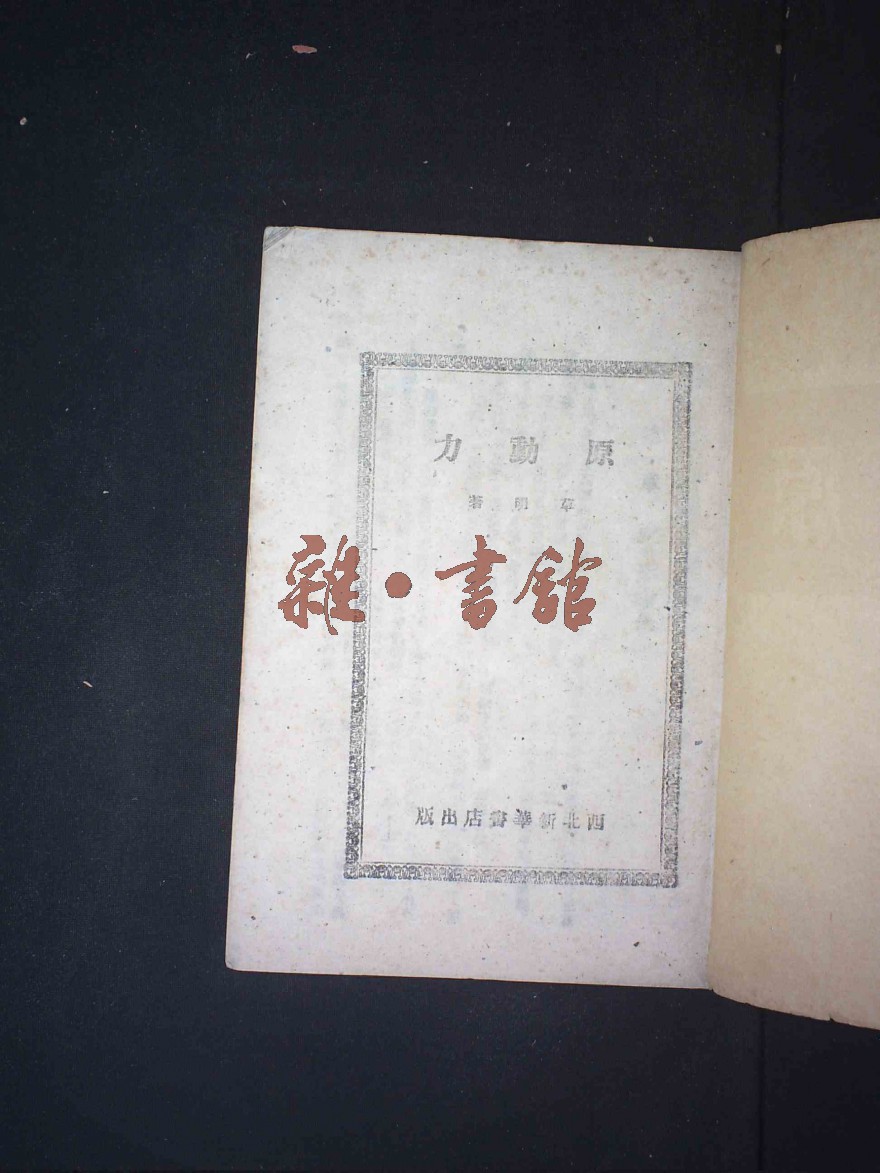 原動力
草明著
雜•書館
西北新華書店出版